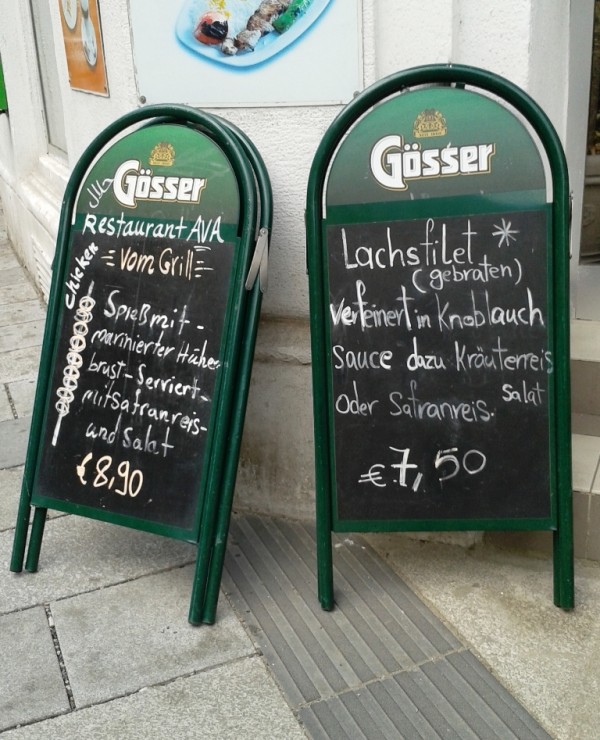 حلال
Gösser
Restaurant AVA
Vom Grill
Chicken
Spieß mit -
marinierter Hühner
brust - Serviert -
mit Safranreis -
und Salat
€8,90
Gösser
Lachsfilet *
(gebraten)
Verfeinert in Knoblauch
Sauce dazu Kräuterreis
Salat
Oder Safranreis.
€ 7,50